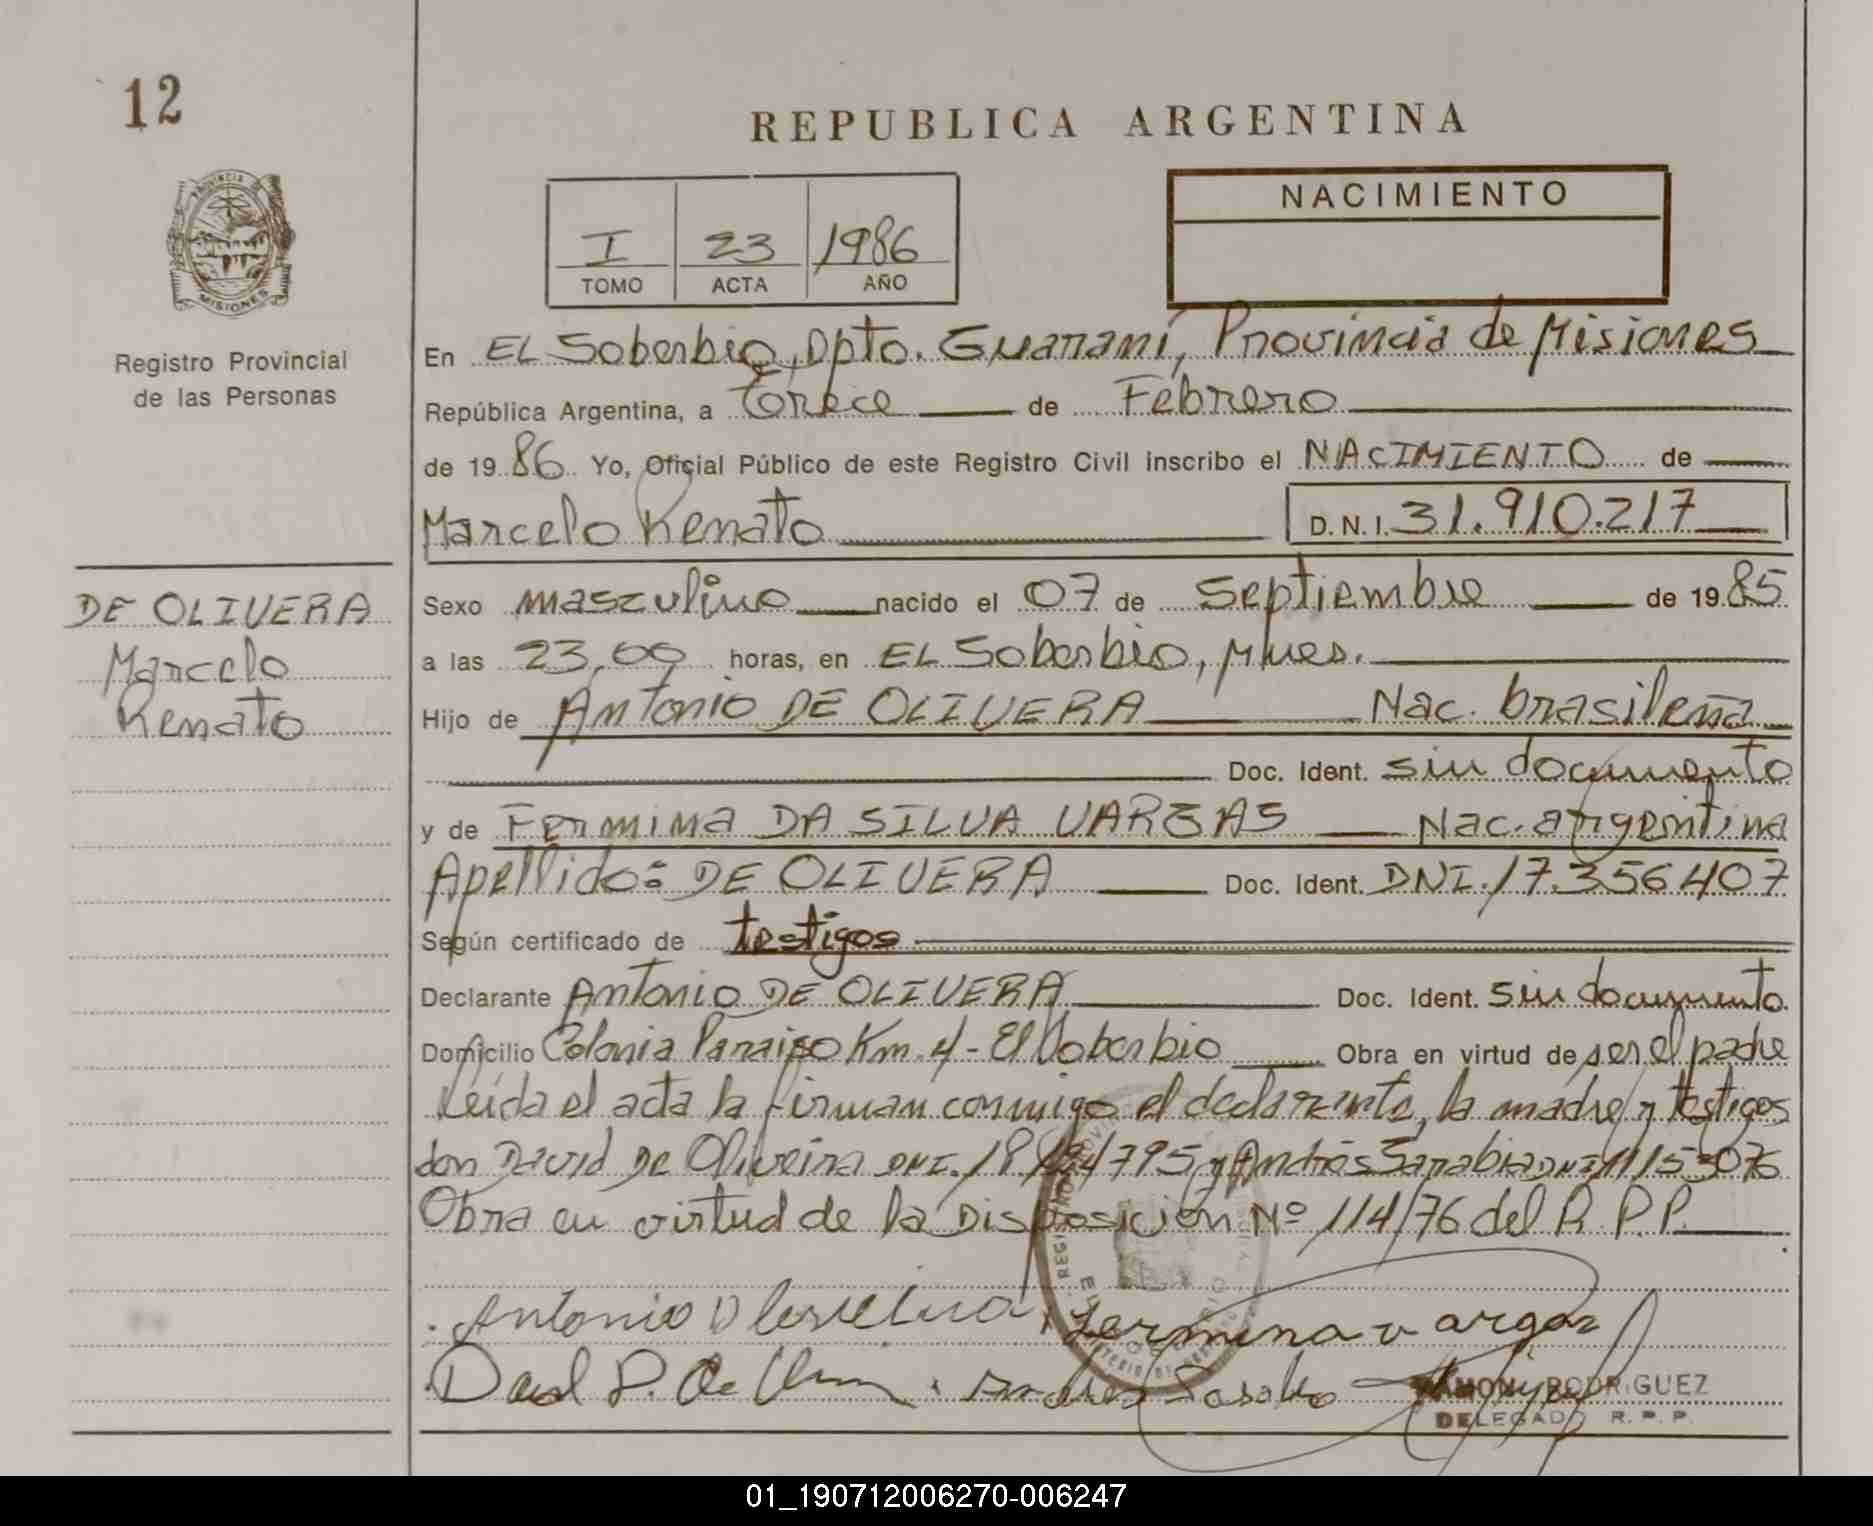 12
REPUBLICA ARGENTINA
PROVINCIA DE
MISIONES
Registro Provincial
de las Personas
NACIMIENTO
I 23 1986
TOMO ACTA AÑO
En EL Soberbio, Dpto. Guaraní, Provincia de Misiones
República Argentina, a Trece de Febrero
de 19 86 Yo, Oficial Público de este Registro Civil inscribo el NACIMIENTO de
Marcelo Renato D.N.I. 31.910.217
DE OLIVERA
Marcelo
Renato
Sexo masculino nacido el 07 de Septiembre de 19 85
a las 23,00 horas, en EL Soberbio, Mnes.
Hijo de Antonio DE OLIVERA Nac. brasileña
Doc. Ident. sin documento
y de Fermina DA SILVA VARGAS Nac. argentina
Apellido: DE OLIVERA Doc. Ident. DNI. 17.356407
Según certificado de testigos
Declarante Antonio DE OLIVERA Doc. Ident. sin documento.
Domicilio Colonia Paraiso Km. 4 - El Soberbio Obra en virtud de ser el padre
Leída el acta la firman conmigo el declarante, la madre y testigos
don David De Oliveira DNI. y Andrés Sarabia DNI
Obra en virtud de la Disposición Nº 114/76 del R.P.P.
Antonio
Fermina vargas
RAMON RODRIGUEZ
DELEGADO R.P.P.
01_190712006270-006247